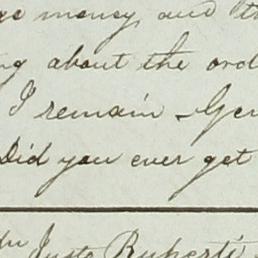 money, and
about the
I remain
Did you ever get
Justo Ruperti